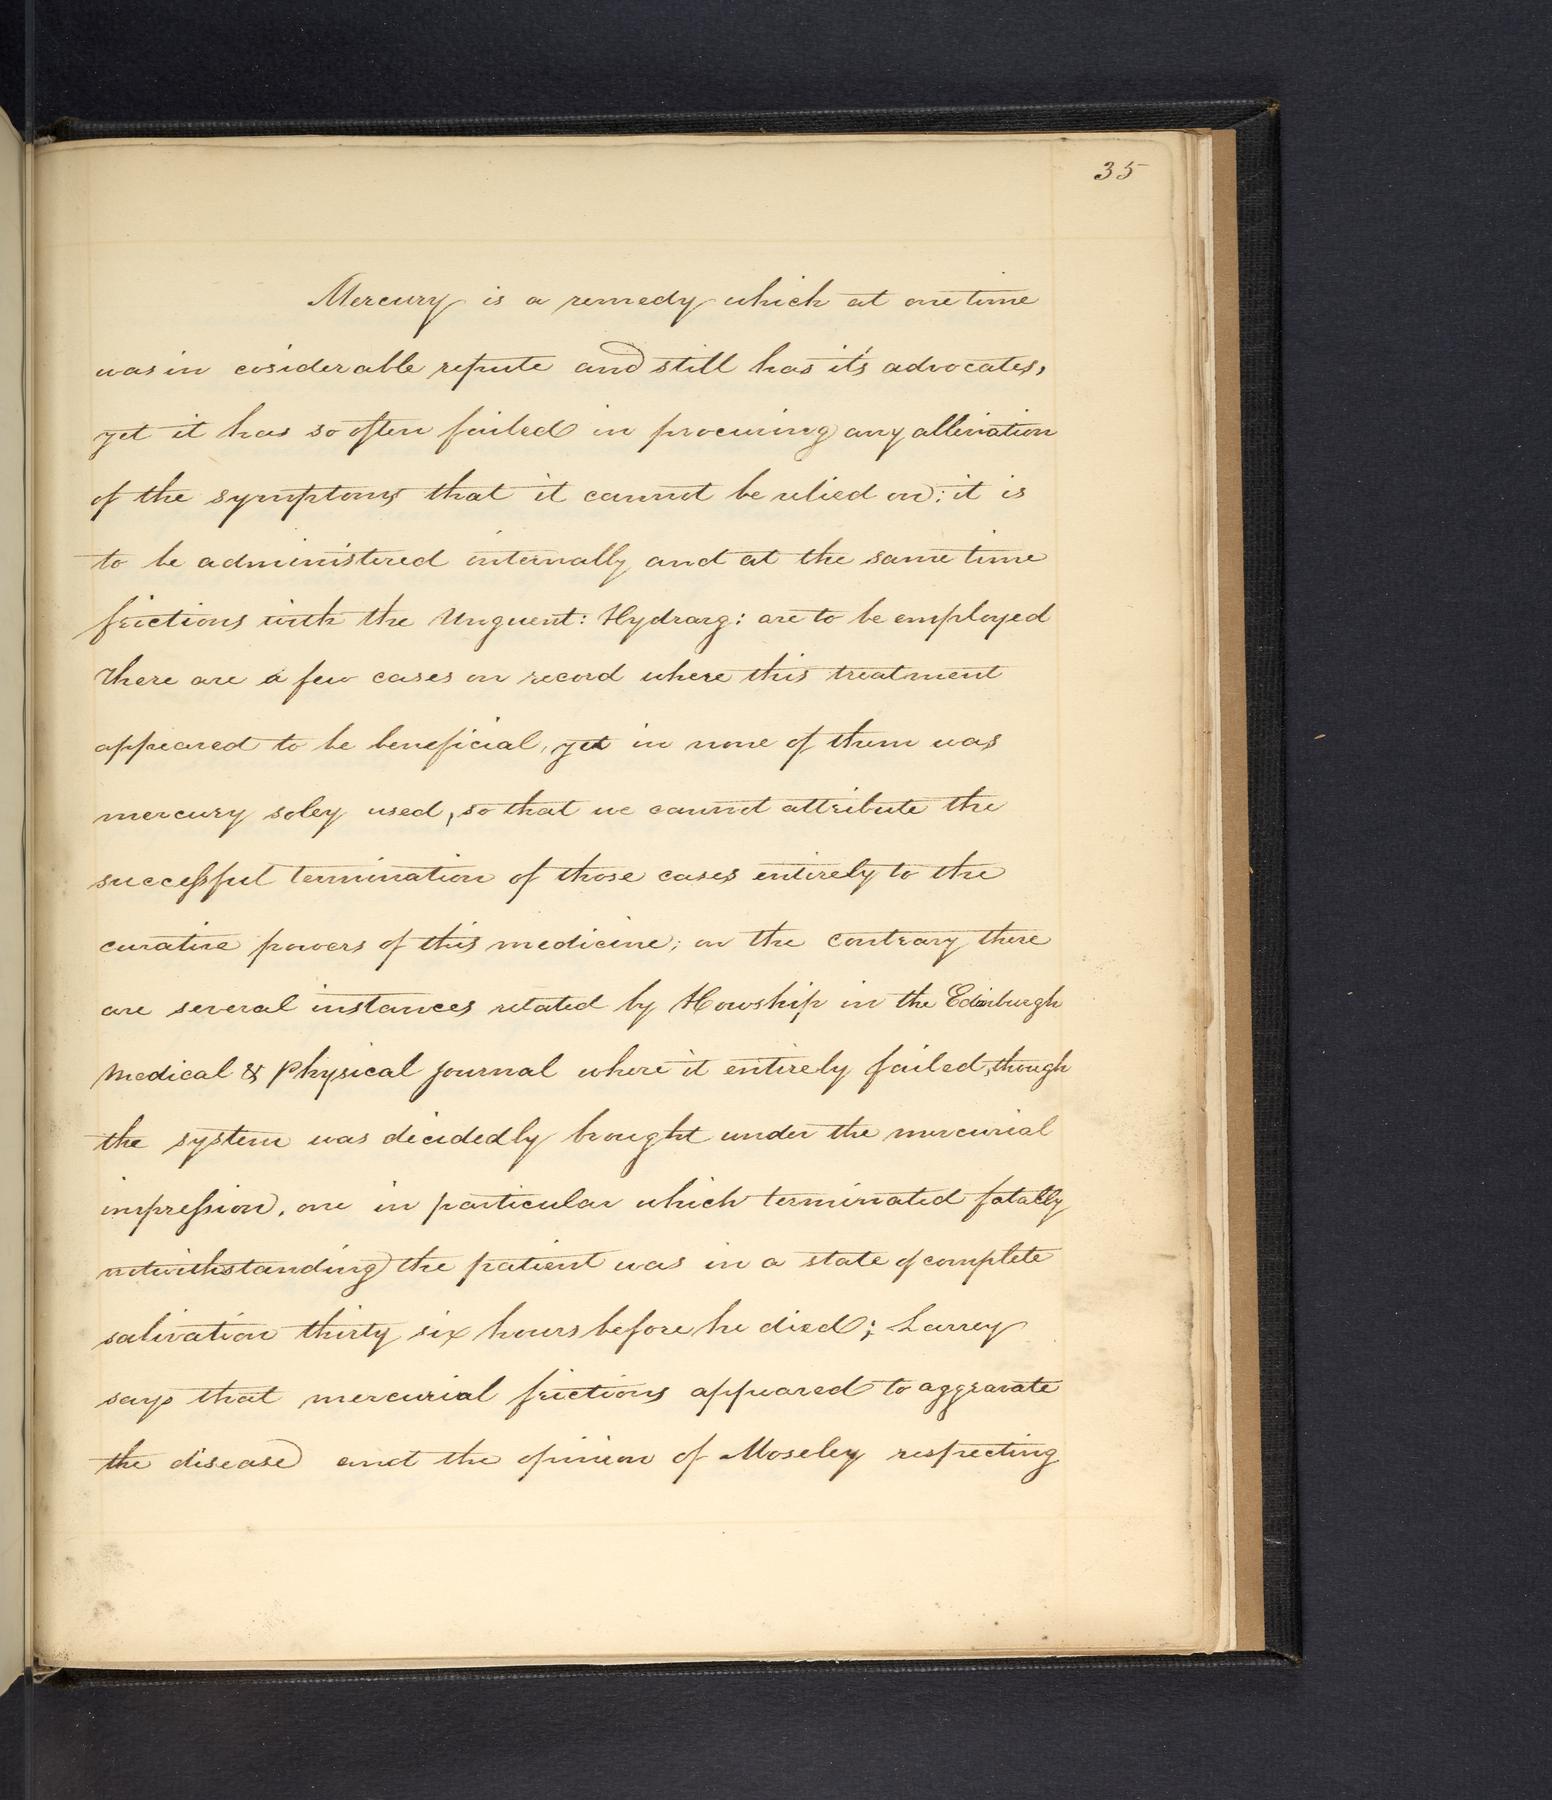 35
Mercury is a remedy which at one time
was in cosiderable repute and still has it's advocates,
yet it has so often failed in procuring any alleviation
of the symptoms that it cannot be relied on: it is
to be administered internally and at the same time
frictions with the Unguent: Hydrarg: are to be employed
There are a few cases on record where this treatment
appeared to be beneficial, yet in none of them was
mercury soley used, so that we cannot attribute the
successful termination of those cases entirely to the
curative powers of this medicine; on the contrary there
are several instances related by Howship in the Edinburgh
Medical & Physical Journal where it entirely failed, though
the system was decidedly brought under the mercurial
impression, one in particular which terminated fatally
notwithstanding the patient was in a state of complete
salivation thirty six hours before he died; Larrey
says that mercurial frictions appeared to aggravate
the disease and the opinion of Moseley respecting